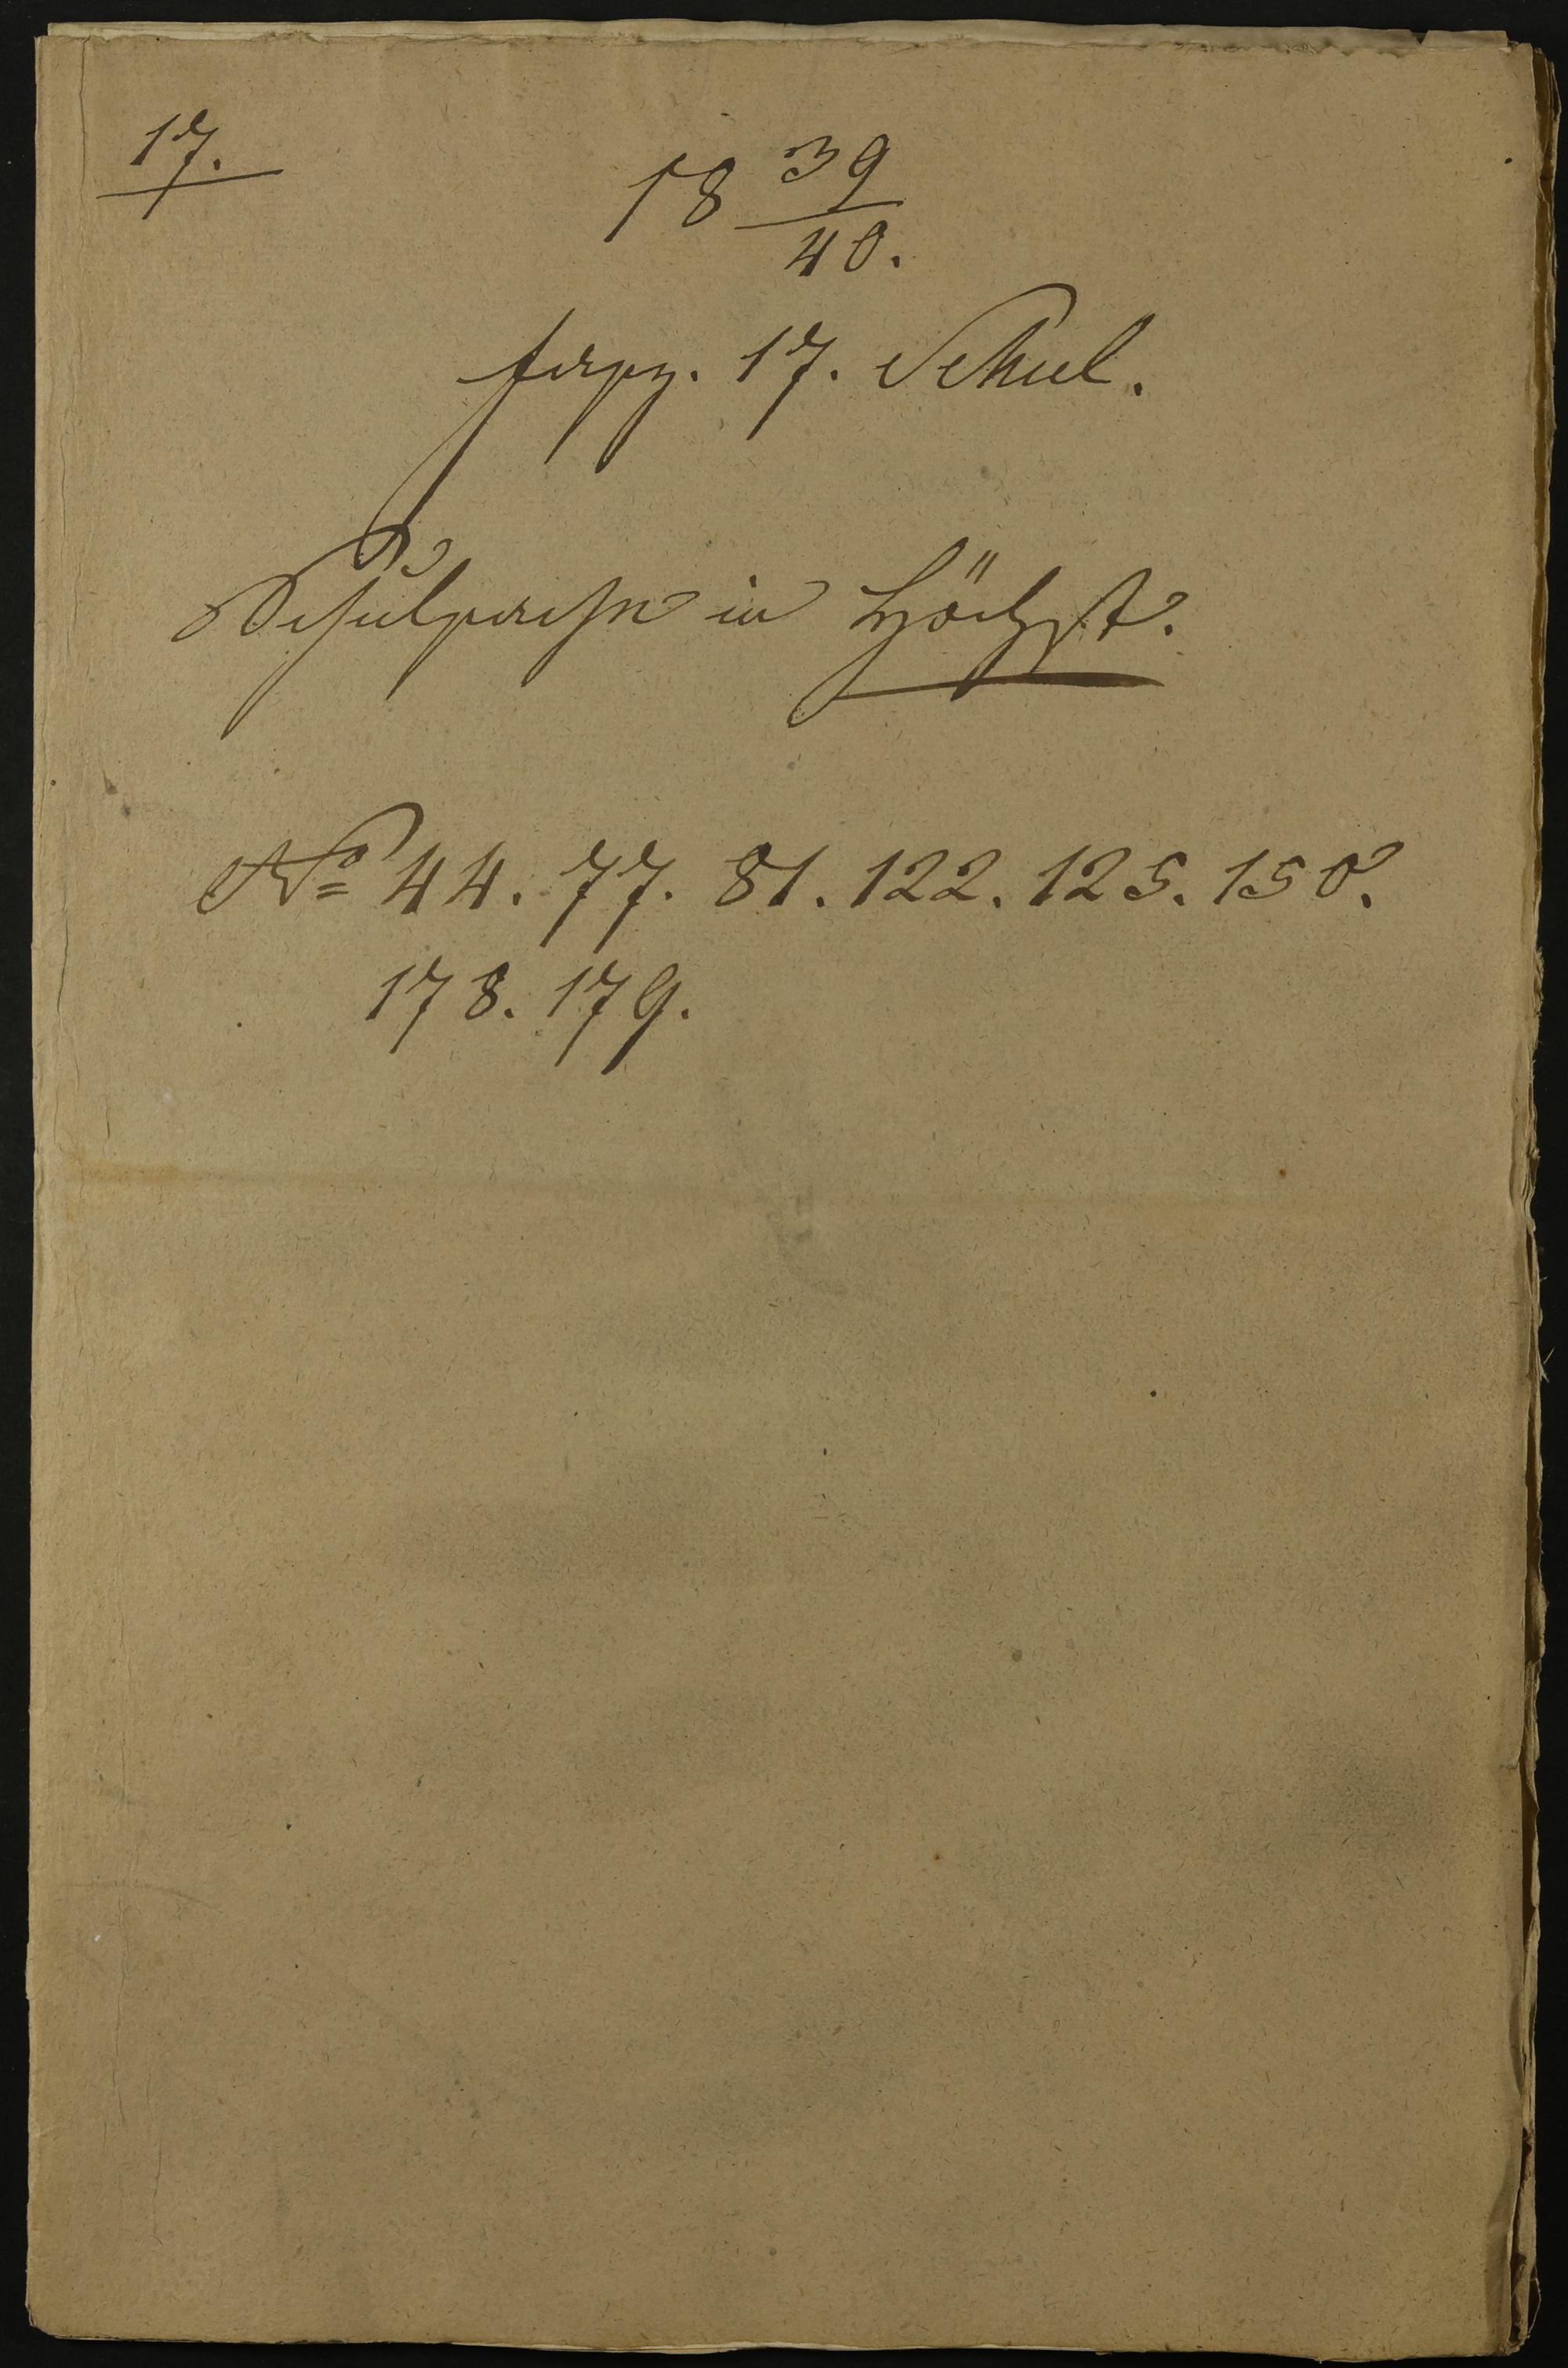 17.
18 39/40.
Fasz. 17. Schul.
Schulsache in Höchst.
No 44. 77. 81. 122. 125. 150.
178. 179.